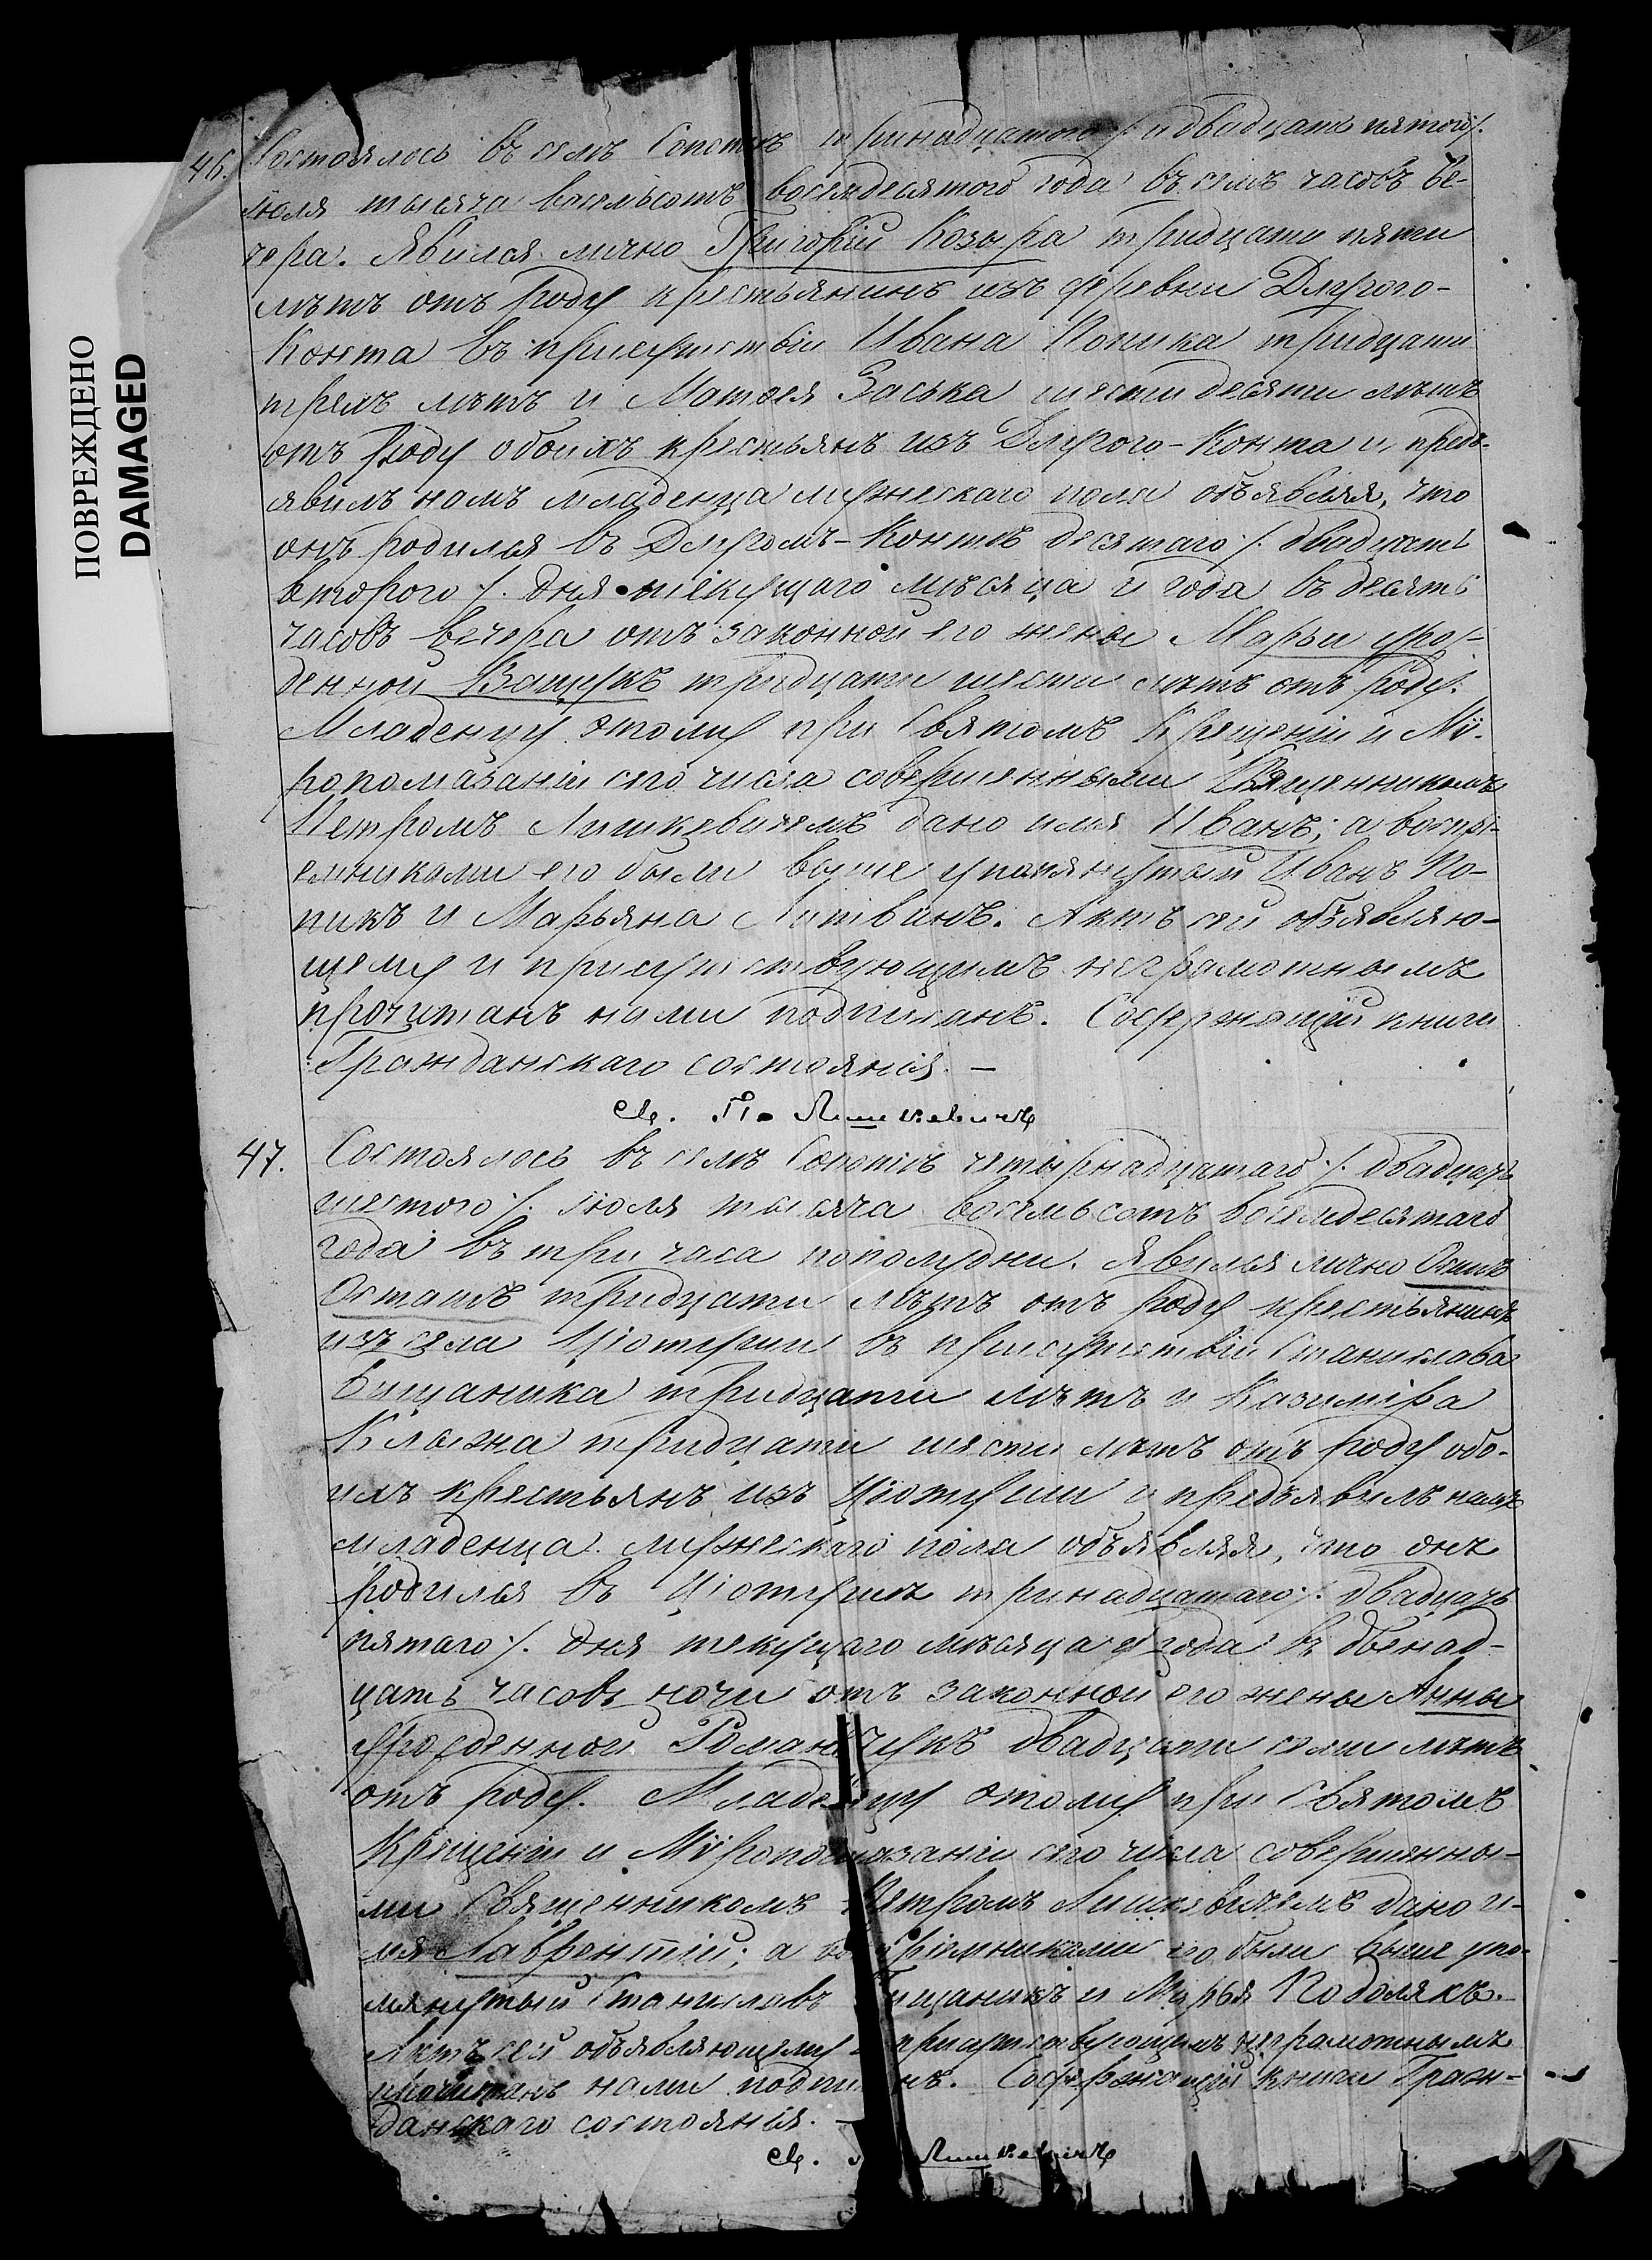 ПОВРЕЖДЕНО
DAMAGED
46. Состоялось въ селѣ Сопотѣ тринадцатого /: двадцать пятого :/
Іюля тысяча восемьсотъ восемдесятого года въ семъ часовъ ве-
чера. Явился лично Григорій Козыра тридцати пяти
лѣтъ отъ роду крестьянинъ изъ деревни Длуого-
Конта въ присутствіи Ивана Попика тридцати
трехъ лѣтъ и Матвея Заська шестидесяти лѣтъ
отъ роду обоихъ крестьянъ изъ Длуого-Конта и предъ-
явилъ намъ младенца мужескаго пола объявляя, что
онъ родился въ Длугомъ-Контѣ десятаго /: двадцать
второго :/ дня текущаго мѣсяца и года въ десять
часовъ вечера отъ законной его жены Марьи уро-
денной Ващукъ тридцати шести лѣтъ отъ роду.
Младенцу этому при Святомъ Крещеніи и Мѵ-
ропомазаніи сего числа совершенными Священникомъ
Петромъ Лишкевичемъ дано имя Иванъ; а воспрі-
емниками его были выше упомянутый Иванъ По-
пикъ и Марьяна Литвинъ. Актъ сей объявляю-
щему и присутствующимъ неграмотнымъ
прочитанъ нами подписанъ. Содержащій книги
Гражданскаго состоянія. —
Св. П. Лишкевичъ
47. Состоялось въ селѣ Сопотѣ четырнадцатаго /: двадцать
шестого :/ Іюля тысяча восемьсотъ восемдесятаго
года въ три часа пополудни. Явился лично Осипъ
Осташъ тридцати лѣтъ отъ роду крестьянинъ
изъ села Ціотуши въ присутствіи Станислава
Бищаника тридцати лѣтъ и Казиміра
тридцати шести лѣтъ отъ роду обо-
ихъ крестьянъ изъ Ціотуши и предъявилъ намъ
младенца мужескаго пола объявляя, что онъ
родился въ Ціотушѣ тринадцатаго /: двадцать
пятаго :/ дня текущаго мѣсяца и года въ двенад-
цать часовъ ночи отъ законной его жены Анны
урожденной Романчукъ двадцати семи лѣтъ
отъ роду. Младенцу этому при Святомъ
Крещеніи и Мѵропомазаніи сего числа совершенны-
ми Священникомъ Петромъ Лишкевичемъ дано и-
мя Лаврентій; а воспріемниками его были выше упо-
мянутый Станиславъ Бищаникъ и Марья Подолякъ.
Актъ сей объявляющему и присутствующимъ неграмотнымъ
прочитанъ нами подписанъ. Содержащій книги Граж-
данскаго состоянія. —
Св. П. Лишкевичъ